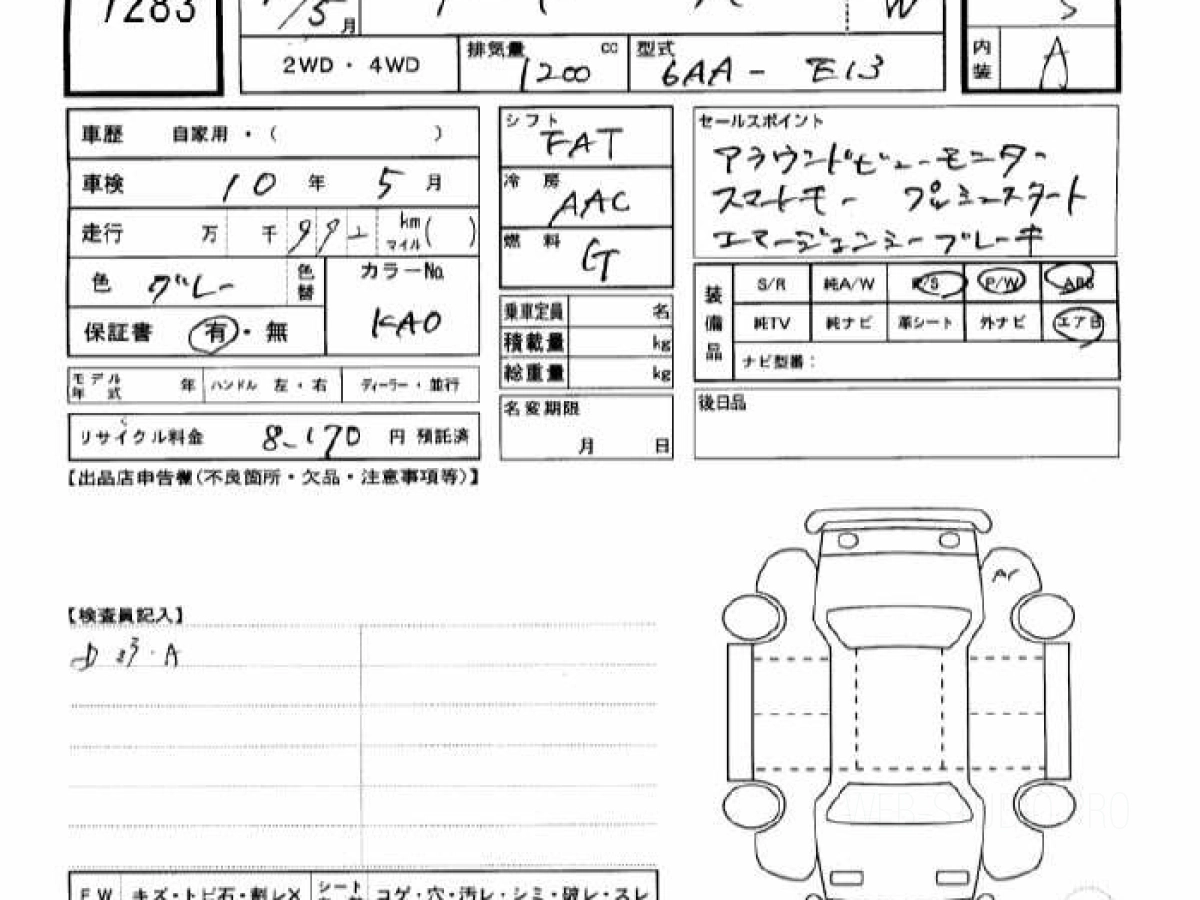 7283
/5月 W S
2WD・4WD 排気量 1200 cc 型式 6AA - E13 内装 A
車歴 自家用・( )
車検 10 年 5 月
走行 万 千 992 km マイル ( )
色 グレー 色替 カラーNo. KAD
保証書 有・無
モデル年式 年 ハンドル 左・右 ディーラー・並行
リサイクル料金 8,170 円 預託済
シフト FAT
冷房 AAC
燃料 G
乗車定員 名
積載量 kg
総重量 kg
名変期限 月 日
セールスポイント
アラウンドビューモニター
スマートキー プッシュスタート
エマージェンシーブレーキ
装備品 S/R 純A/W P/S P/W ABS
純TV 純ナビ 革シート 外ナビ エアB
ナビ型番:
後日品
【出品店申告欄(不良箇所・欠品・注意事項等)】
【検査員記入】
A
FW キズ・トビ石・割レX シート コゲ・穴・汚レ・シミ・破レ・スレ